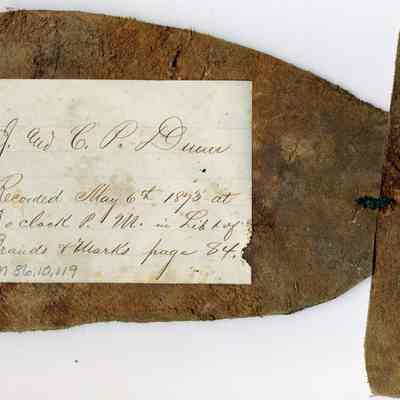 J. Geo C. P. Dunn
Recorded May 6th 1873 at
o'clock P. M. in Lib 1 of
Brands & Marks page 84.
86.10.119